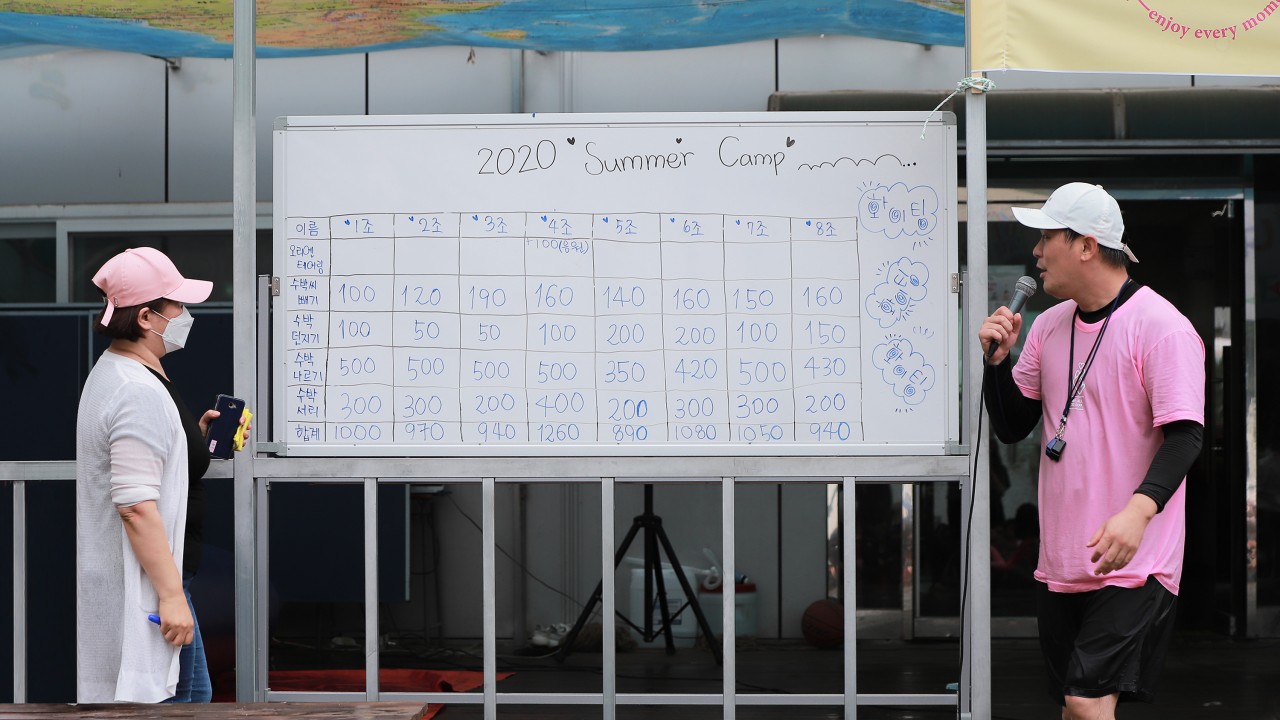 enjoy every mom
2020 Summer Camp
이름 1조 2조 3조 4조 5조 6조 7조 8조
+100(응원)
수박씨
빼기 100 120 190 160 140 160 150 160
수박
던지기 100 50 50 100 200 200 100 150
수박
나르기 500 500 500 500 350 420 500 430
수박
서리 300 300 200 400 200 300 300 200
합계 1000 970 940 1260 890 1080 1050 940
화이팅